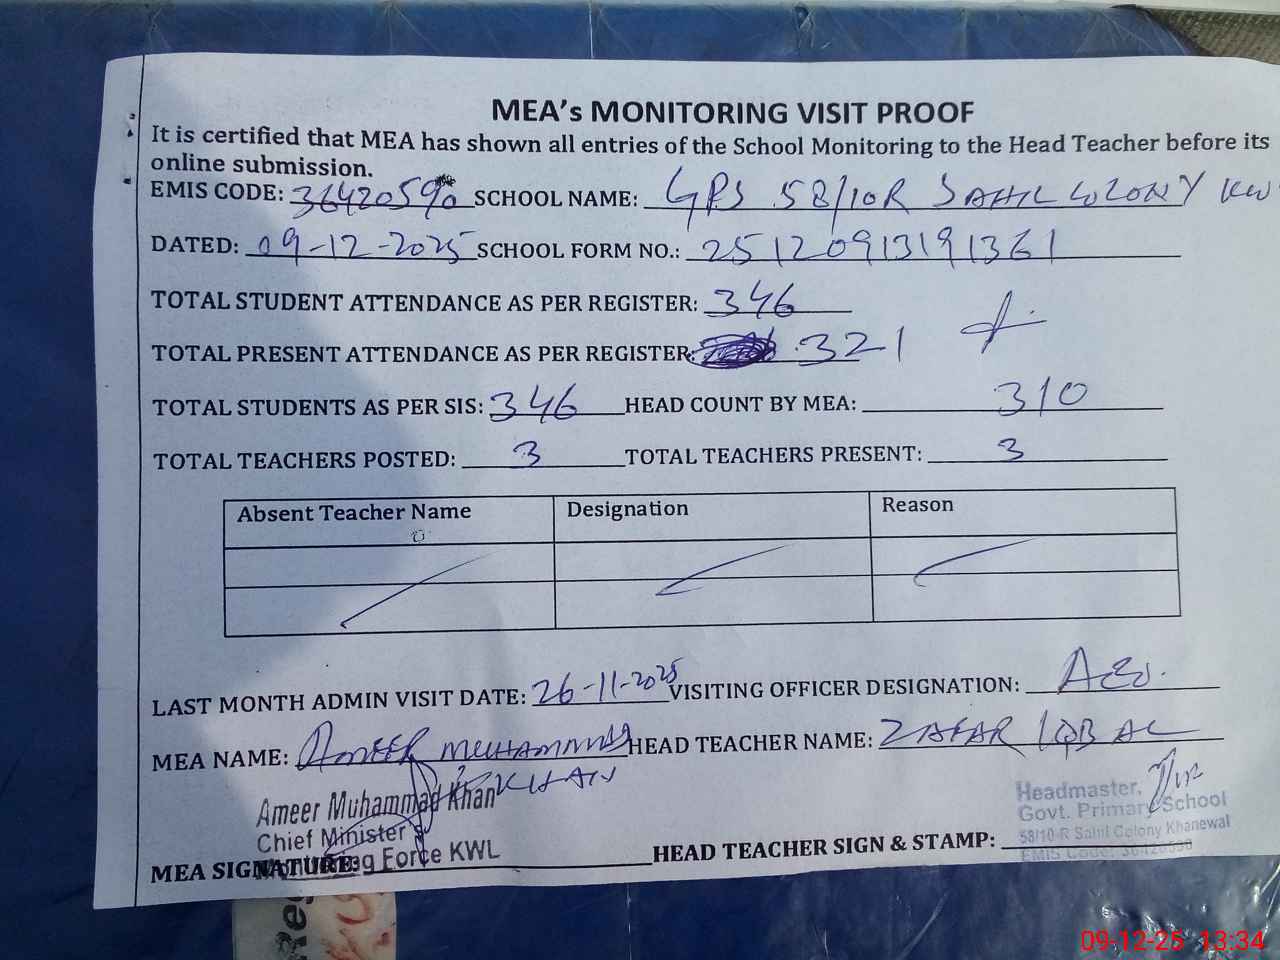 MEA's MONITORING VISIT PROOF
It is certified that MEA has shown all entries of the School Monitoring to the Head Teacher before its
online submission.
EMIS CODE: 36420590 SCHOOL NAME: GPS 58/10R SAHIL COLONY KW
DATED: 09-12-2025 SCHOOL FORM NO.: 25120913191361
TOTAL STUDENT ATTENDANCE AS PER REGISTER: 346
TOTAL PRESENT ATTENDANCE AS PER REGISTER: 321
TOTAL STUDENTS AS PER SIS: 346 HEAD COUNT BY MEA: 310
TOTAL TEACHERS POSTED: 3 TOTAL TEACHERS PRESENT: 3
Absent Teacher Name Designation Reason
LAST MONTH ADMIN VISIT DATE: 26-11-2025 VISITING OFFICER DESIGNATION: AEO.
MEA NAME: AMEER MUHAMMAD HEAD TEACHER NAME: ZAFAR IQBAL
KHAN
Ameer Muhammad Khan
Chief Minister's
Monitoring Force KWL
MEA SIGNATURE:
Headmaster,
Govt. Primary School
58/10-R Sahil Colony Khanewal
EMIS Code: 36420590
HEAD TEACHER SIGN & STAMP:
Reg
09-12-25 13:34